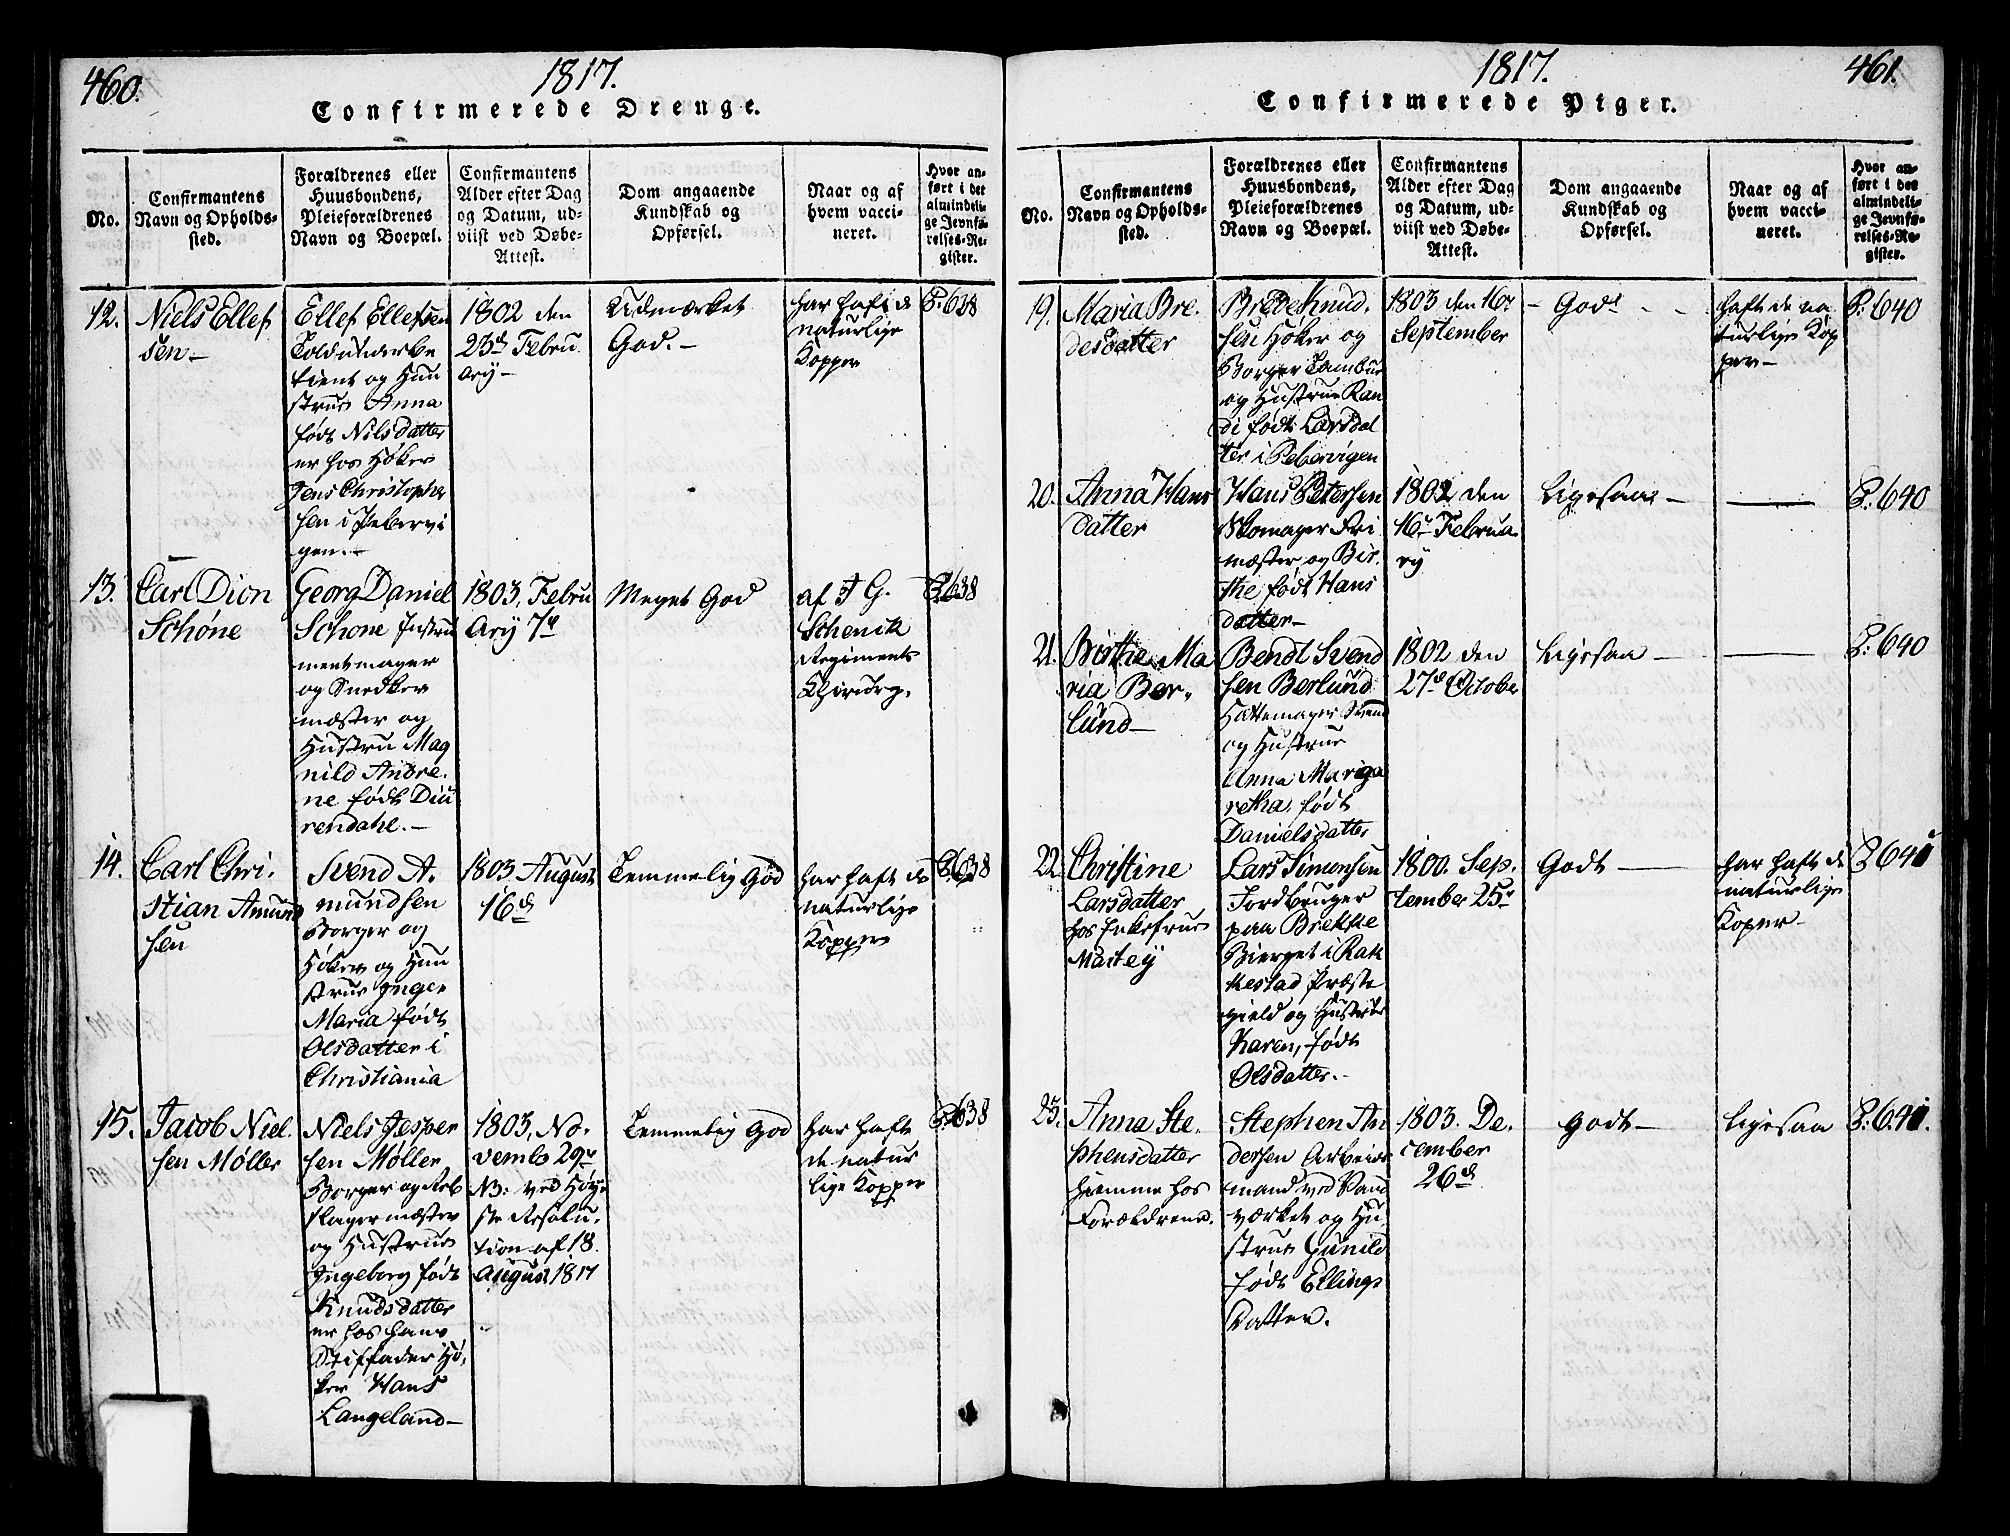 460.
1817.
Confirmerede Drenge.
No.
Confirmantens
Navn og Opholds-
sted.
Forældrenes eller
Huusbondens,
Pleieforældrenes
Navn og Boepæl.
Confirmantens
Alder efter Dag
og Datum, ud-
viist ved Døbe-
Attest.
Dom angaaende
Kundskab og
Opførsel.
Naar og af
hvem vacci-
neret.
Hvor an-
ført i det
almindeli-
ge Jevnfø-
relses-Re-
gister.
12.
Niels Ellef
sen
Ellef Ellefsen
Toldunderbe
tient og Huu
strue Anna
født Nilsdatter
er hos Høker
Jens Christopher
sen i Pebervi
gen.
1802 den
23d Febru
ary
Udmærket
God.
har haft de
naturlige
Kopper
P. 638
13.
Carl Dion
Schöne
Georg Daniel
Schone Instru
mentmager
og Snedker
mæster og
Hustru Mag
nild Andre.
ne født Diu
rendahl.
1803, Febru
Ary 7de
Meget God
af J G.
Schenck
Regiments
Chirurg.
P. 638
14.
Carl Chri.
stian Amund
sen
Svend A.
mundsen
Borger og
Høker og Huu
strue Inger
Maria født
Olsdatter i
Christiania
1803 August
16d
Temmelig God
har haft de
naturlige
Kopper
P. 638
15.
Jacob Niel.
sen Møller
Niels Jesper
sen Møller
Borger og Reb
slagermæster
og Hustrue
Ingeborg født
Knudsdatter
er hos hans
Stiffader Hø,
ker Hans
Langeland
1803, No.
vembr 29de
NB: ved Høye
ste Resolu.
tion af 18.
August 1817
Temmelig God
har haft
de natur
lige Kopper
P. 638
1817.
461.
Confirmerede Piger.
No.
Confirmantens
Navn og Opholds-
sted.
Forældrenes eller
Huusbondens,
Pleieforældrenes
Navn og Boepæl.
Confirmantens
Alder efter Dag
og Datum, ud-
viist ved Døbe-
Attest.
Dom angaaende
Kundskab og
Opførsel.
Naar og af
hvem vacci-
neret.
Hvor an-
ført i det
almindeli-
ge Jevnfø-
relses-Re-
gister.
19.
Maria Bre.
desdatter
Brede Knud.
sen Høker og
Borger Tambur
og Hustrue Ran
di født Larsdat
ter i Pebervigen
1803 den 16de
September
Godt
haft de na
turlige Kop
per
P. 640
20.
Anna Hans
datter
Hans Petersen
Skomager Fri
mæster og Bir.
the født Hans
datter
1802 den
16de Februa
ry
Ligesaa
P. 640
21.
Birthe Ma
ria Ber.
lund
Bendt Svend
sen Berlund
Hattemager Svend
og Hustrue
Anna Marga
retha, født
Danielsdatter
1802 den
27de October
Ligesaa
P. 640
22.
Christine
Larsdatter
hos Enkefrue
Martey
Lars Simonsen
Jordbruger
paa Brekke
Bierget i Rak
kestad Præste
gield og Hustrue
Karen, født
Olsdatter.
1800. Sep.
tember 25de
Godt
har haft de
naturlige
Koper
P. 641
23.
Anna Ste.
phensdatter
hiemme hos
Forældrene.
Stephen An
dersen Arbeids
mand ved Vand
værket og Hu
strue Gunild
født Ellings
datter.
1803. De.
cember
26d
Godt
Ligesaa
P. 641.